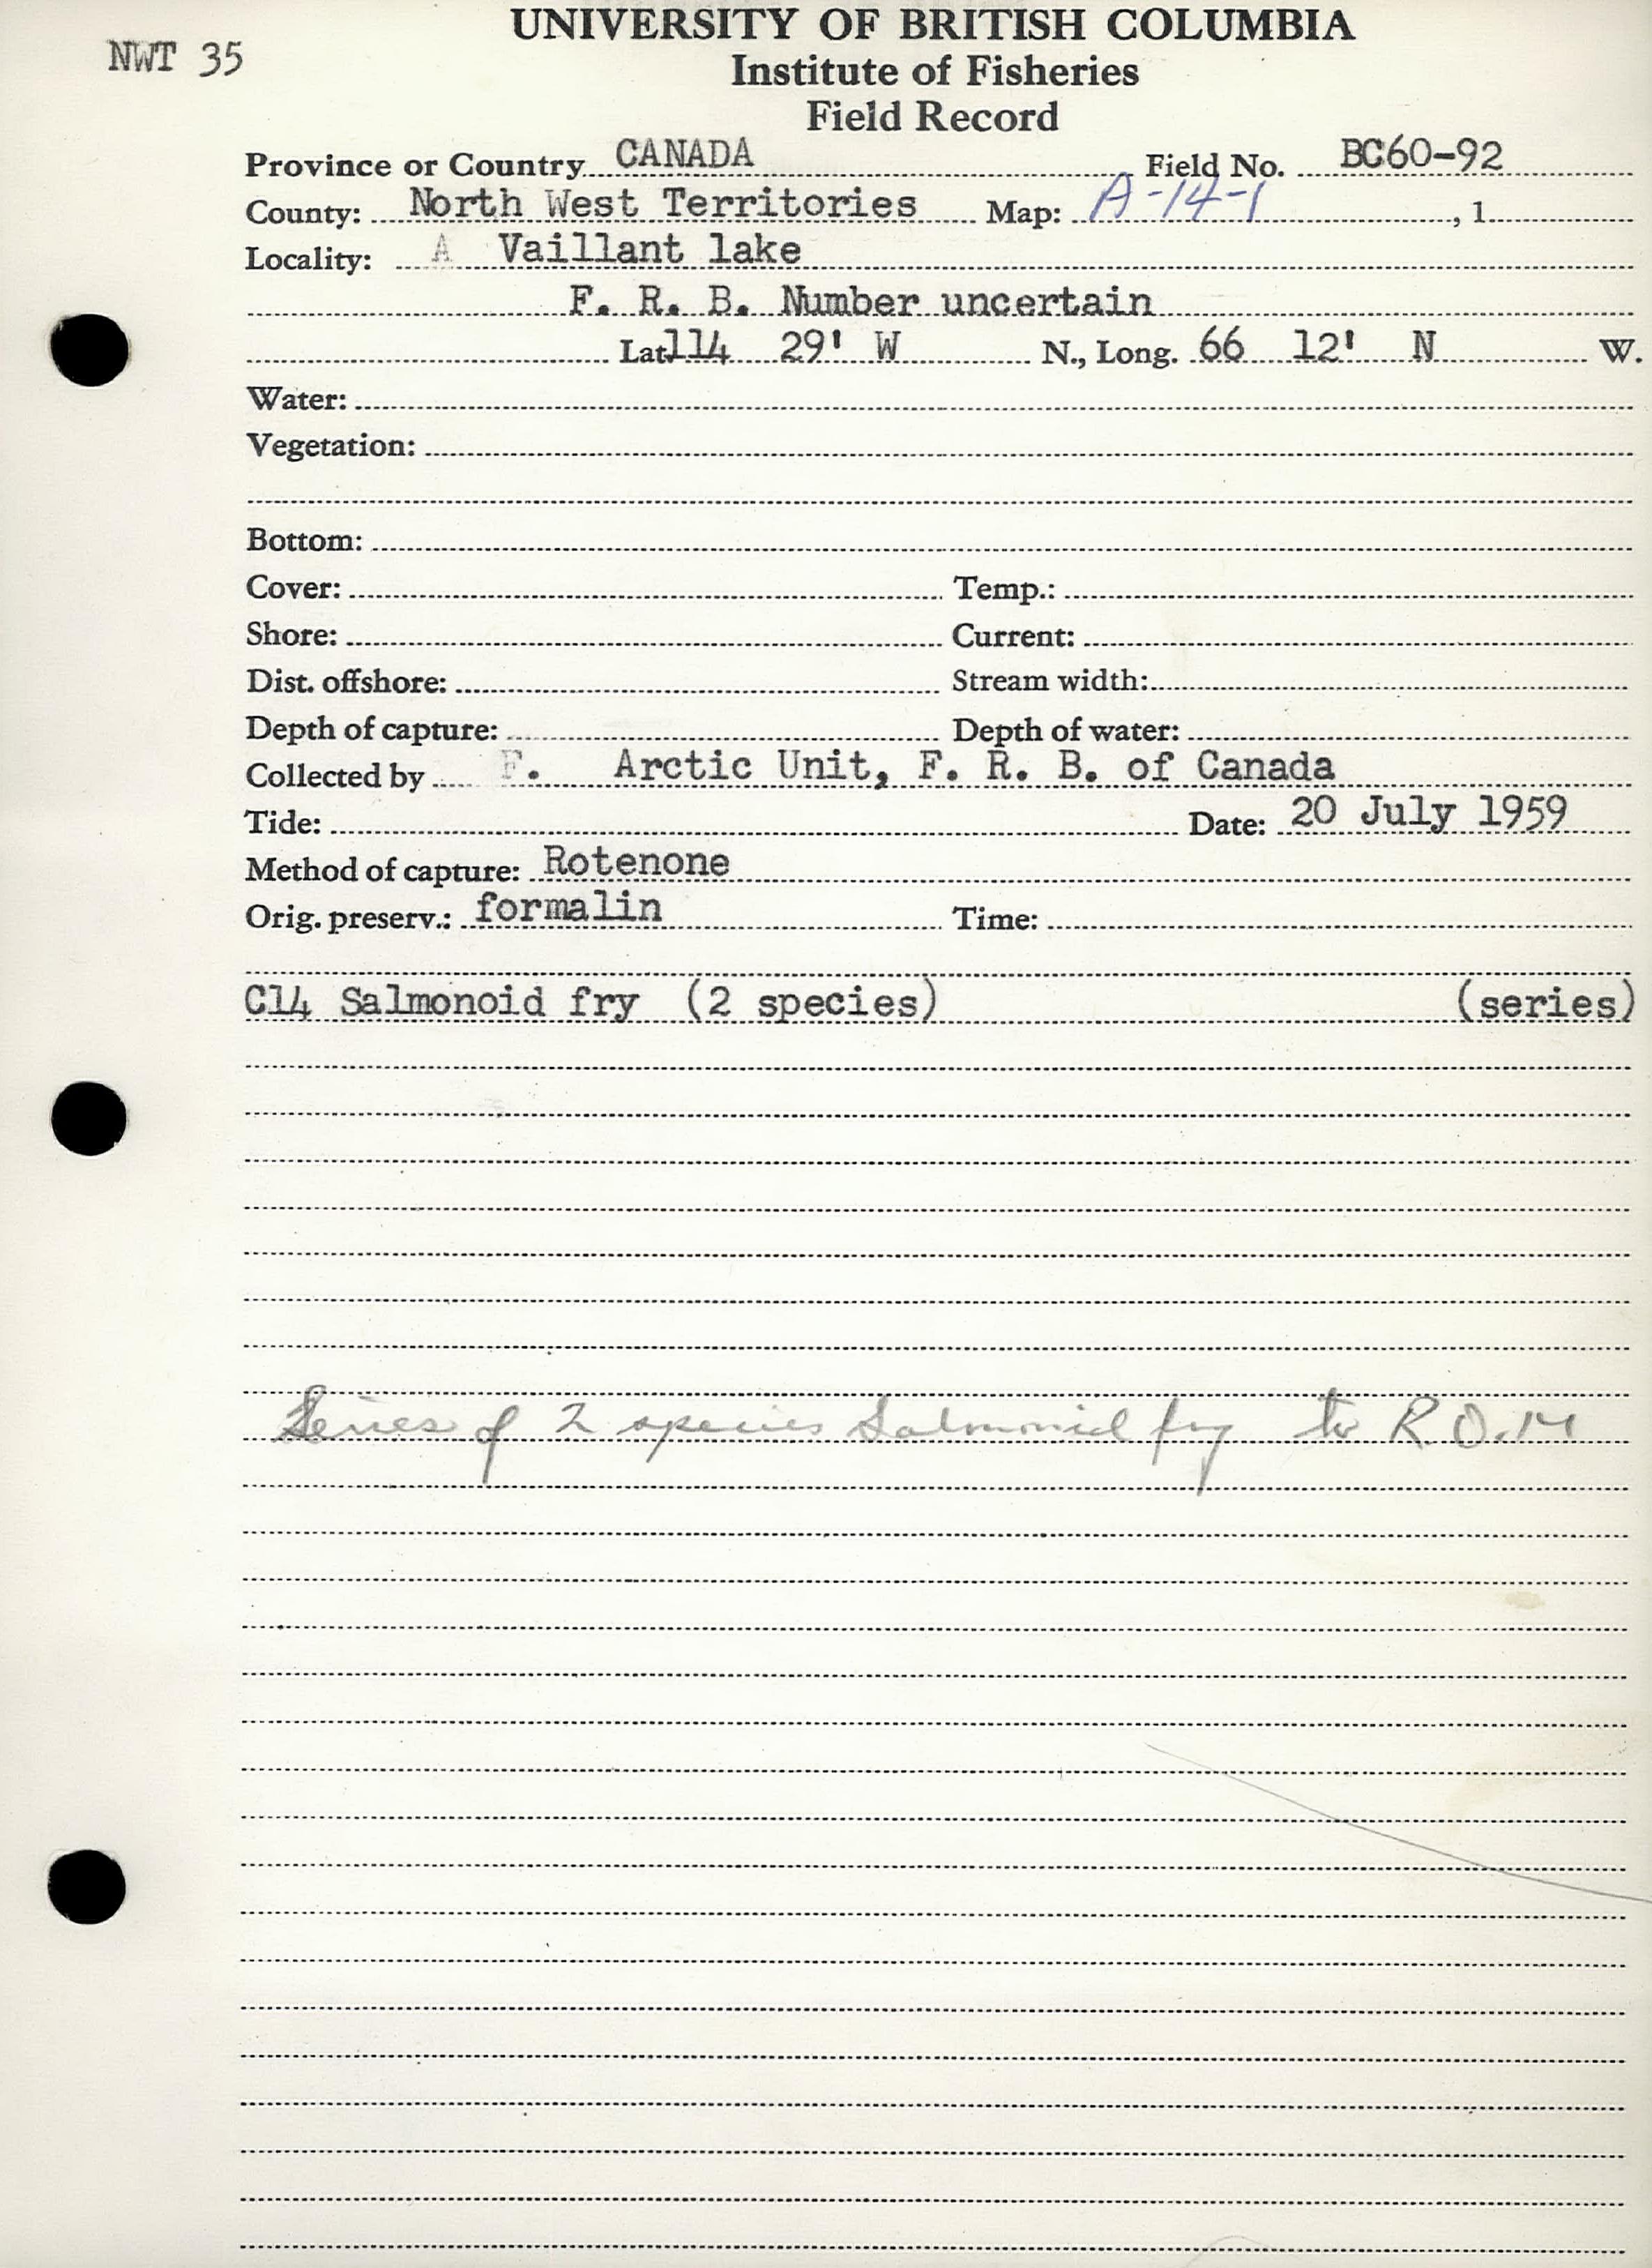 NWT 35
UNIVERSITY OF BRITISH COLUMBIA
Institute of Fisheries
Field Record
Province or Country CANADA Field No. BC60-92
County: North West Territories Map: A-14-1 , 1
Locality: A Vaillant lake
F. R. B. Number uncertain
Lat. 114 29' W N., Long. 66 12' N W.
Water:
Vegetation:
Bottom:
Cover: Temp.:
Shore: Current:
Dist. offshore: Stream width:
Depth of capture: Depth of water:
Collected by F. Arctic Unit, F. R. B. of Canada
Tide: Date: 20 July 1959
Method of capture: Rotenone
Orig. preserv.: formalin Time:
C14 Salmonoid fry (2 species) (series)
Series of 2 species Salmonid fry to R.O.M